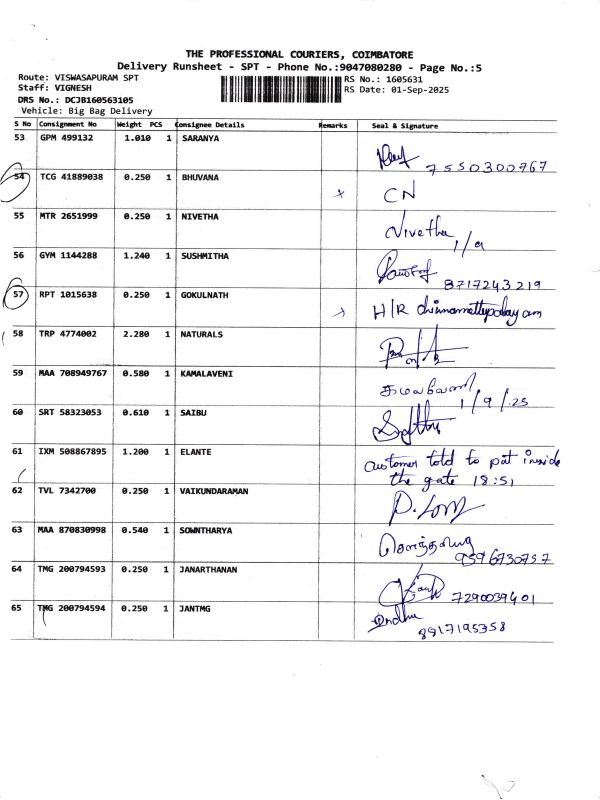 THE PROFESSIONAL COURIERS, COIMBATORE
Delivery Runsheet - SPT - Phone No.:9047080280 - Page No.:5
Route: VISWASAPURAM SPT RS No.: 1605631
Staff: VIGNESH RS Date: 01-Sep-2025
DRS No.: DCJB160563105
Vehicle: Big Bag Delivery
S No Consignment No Weight PCS Consignee Details Remarks Seal & Signature
53 GPM 499132 1.010 1 SARANYA
7550300767
54 TCG 41889038 0.250 1 BHUVANA
x CN
55 MTR 2651999 0.250 1 NIVETHA
Nivetha 1/9
56 GYM 1144288 1.240 1 SUSHMITHA
8717243219
57 RPT 1015638 0.250 1 GOKULNATH
H/R chinnamettypalayam
58 TRP 4774002 2.280 1 NATURALS
59 MAA 708949767 0.580 1 KAMALAVENI
கமலவேணி
1/9/25
60 SRT 58323053 0.610 1 SAIBU
61 IXM 508867895 1.200 1 ELANTE
customer told to put inside
the gate 18:51
62 TVL 7342700 0.250 1 VAIKUNDARAMAN
63 MAA 870830998 0.540 1 SOWNTHARYA
9596730757
64 TMG 200794593 0.250 1 JANARTHANAN
7290039401
65 TMG 200794594 0.250 1 JANTMG
8917195358